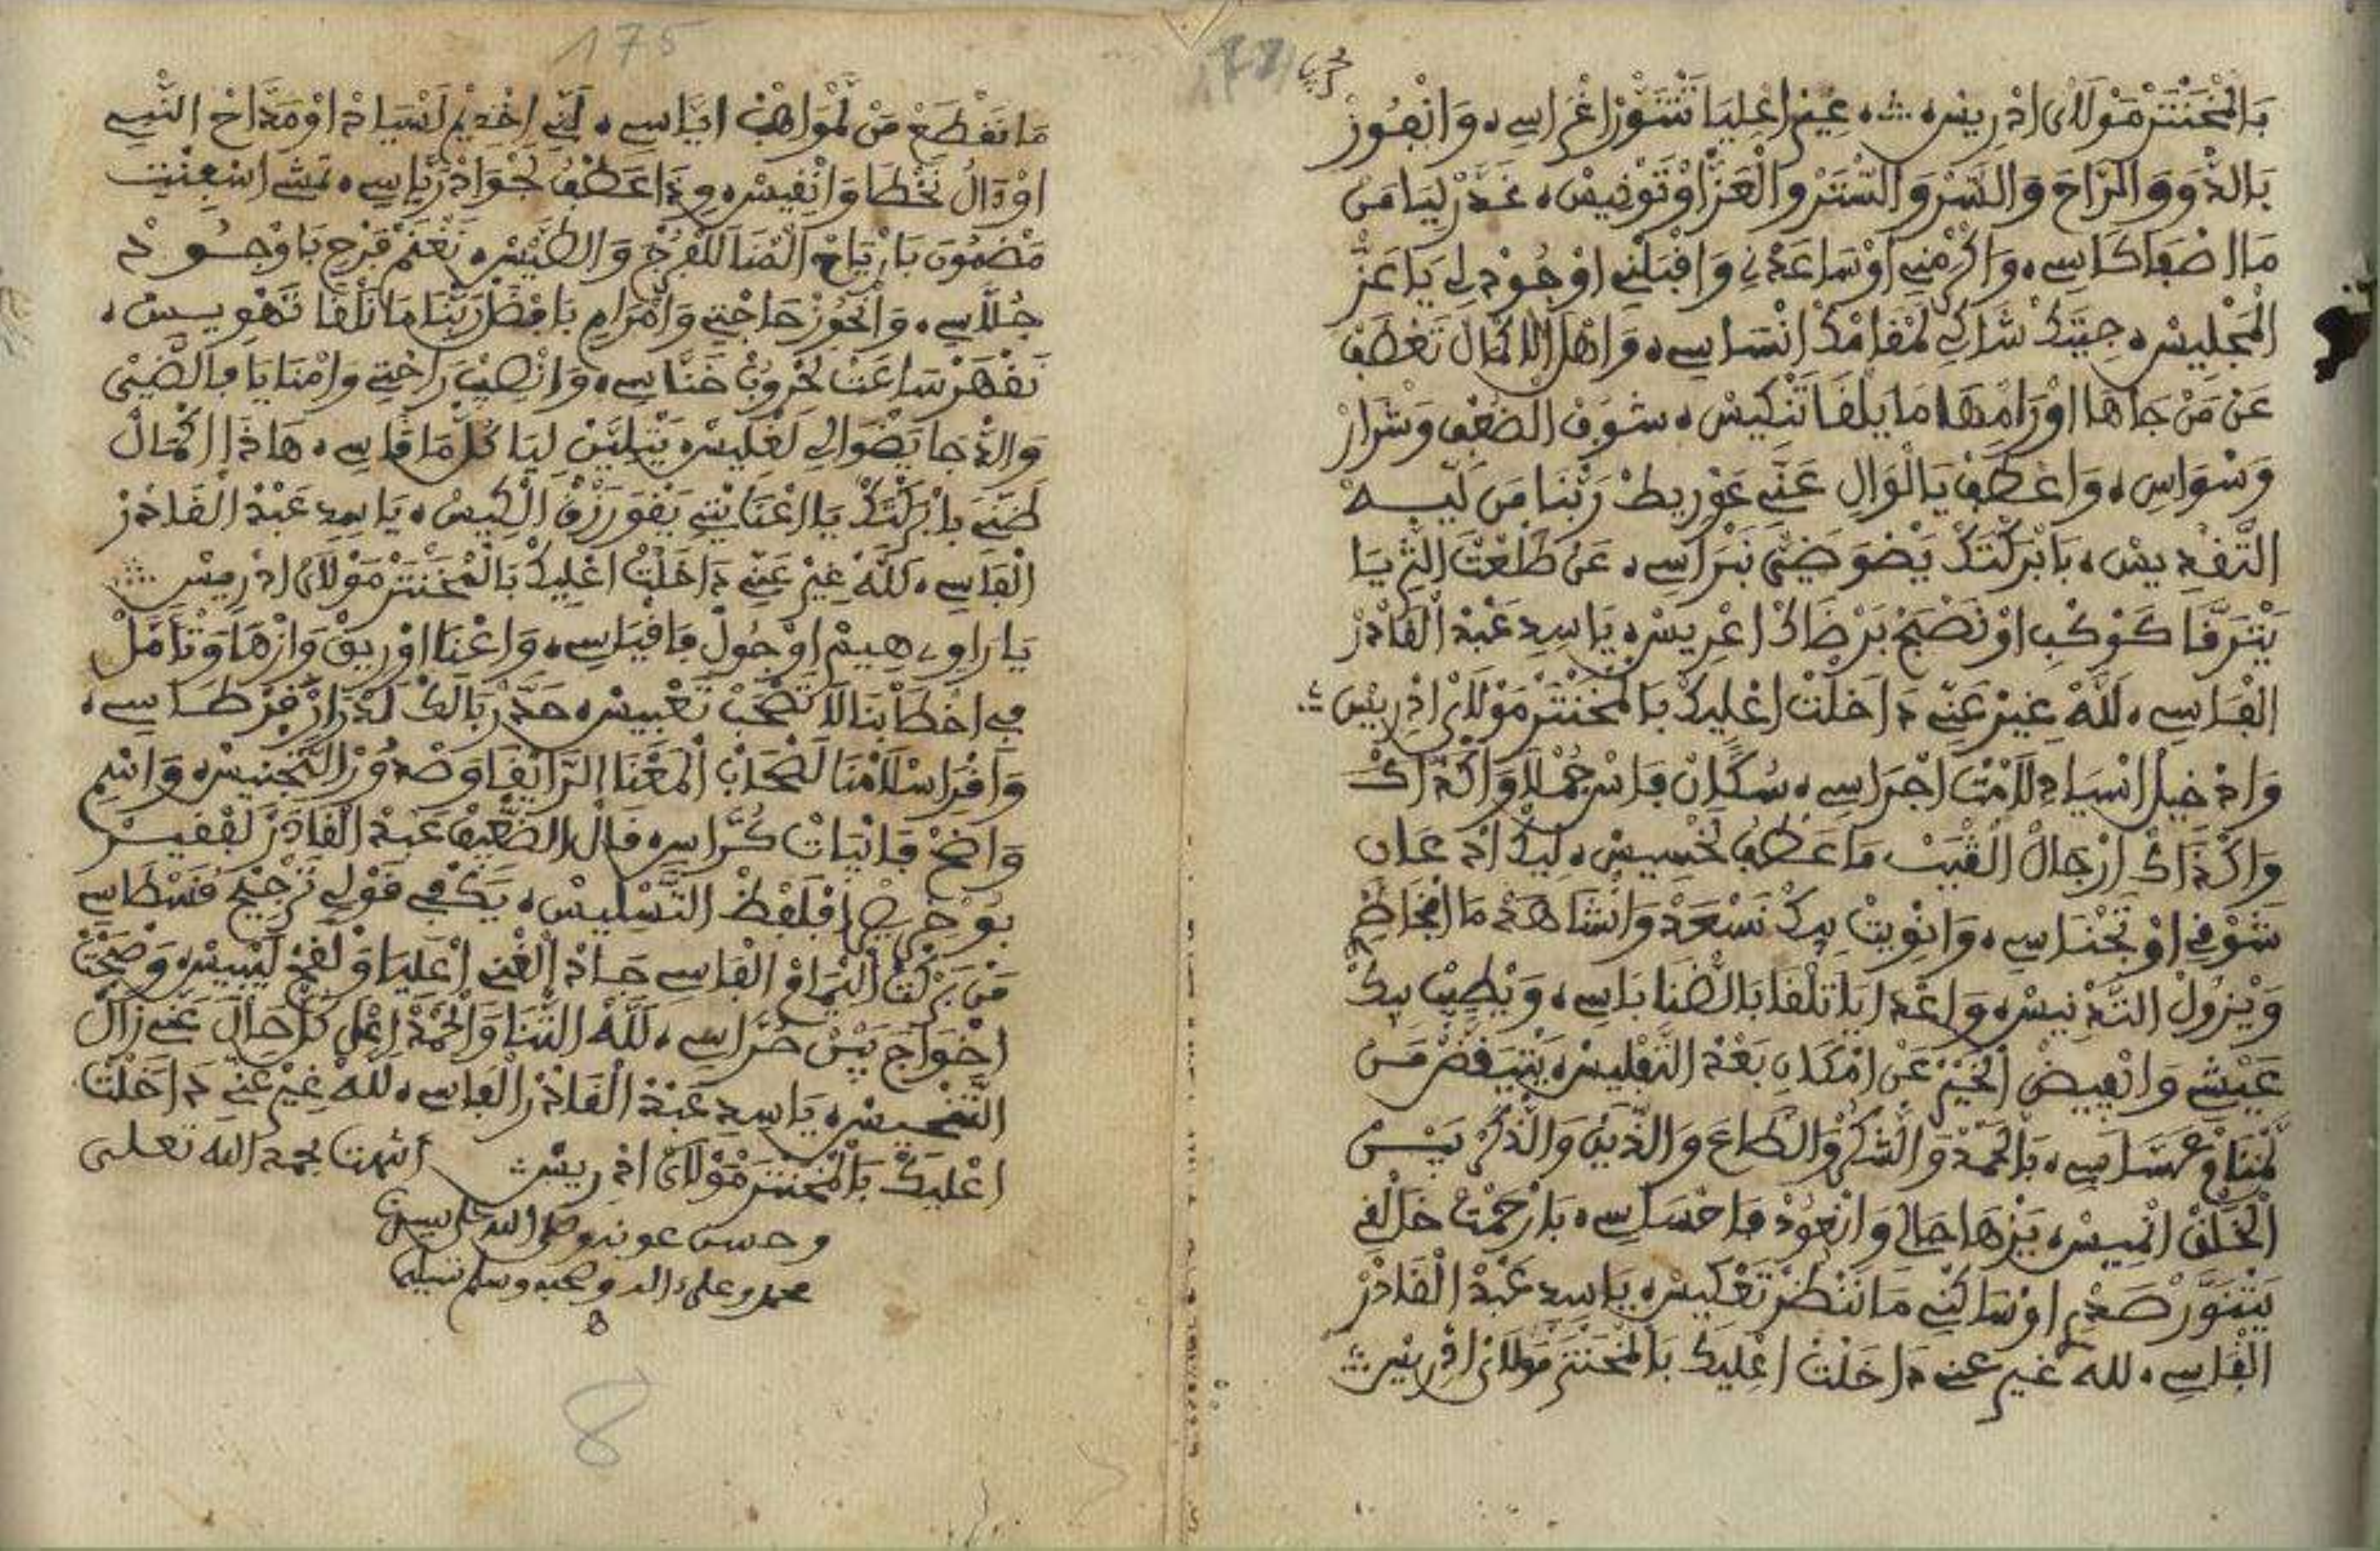 بَالْمَخَنْتَرْ مَوْلَايْ ادْرِيسْ ۞ غِيرْ اعْلِيَا تَتْنَوَّرْ اغْرَاسِي ۰ وَانْفُوزْ
بَالدُّوَ وَالرَّاحَ وَالسَّرْ وَالسَّتَرْ وَالْعَزّْ اوْتَوْنِيسْ ۰ غَدَّرْ لِيَا مَنْ
مَا الصْفَا كَاسِي ۰ وَاكْرَمْنِي اوْسَاعَدْنِي وَاقْبَلْنِي اوْجُودْ لِي يَا عَزّْ
الْمَجْلِيسْ ۰ جِيتَكْ شَاكِي لَمْقَامَكْ انْسَاسِي ۰ وَاهْلْ الْاكْمَالْ تَعْطَفْ
عَنْ مَنْ جَاهَا اوْرَامْهَا مَا يَلْقَا تَنْكِيسْ ۰ شَوْفْ الضُعْفِ وَشْرَارْ
وَسْوَاسِ ۰ وَاعْطَفْ يَا لْوَالِ عَنِّي غَوْرِيطْ رَبْنَا مَنْ لِيـه
التَّقْدِيسْ ۰ بَابْرَكْتَكْ يَضْوَ ضَيِّ نَبْرَاسِي ۰ عَنْ طَلْعَتْ الثْرِيَا
يَتْرَقَّا كَوْكْبِ اوْنَصْبَحْ بَرْضَاكْ اعْرِيسْ ۰ يَا سِيدِ عَبْدْ الْقَادَرْ
الْفَاسِي ۰ لَلَّهْ غِيرْ عَنِّي دَاخَلْتْ اعْلِيكْ بَالْمَخَنْتَرْ مَوْلَايْ ادْرِيسْ ۞
وَادْخِيلْ انْسِيَادِ لَامْتْ اجْرَاسِي ۰ سُكَّانْ فَاسْ جُمْلَا وَاكْذَاكْ
وَاكْذَاكْ ارْجَالْ الْغَيْبْ مَا عَطْفُ لَخْسِيسْ ۰ لِيكْ ادْعَانِ
شَوْقِي اوْتَخْنَاسِي ۰ وَانْوِيتْ بِيكْ نَسْعَدْ وَانْشَاهَدْ مَا افْخَاطْرِ
وَيْزُولْ التَّدْنِيسْ ۰ وَاعْدَايَا تَلْقَا بَالضْنَا بَاسِي ۰ وَيْطِيبْ بِيكْ
عَيْشِي وَانْفِيضْ الْخَيْرْ عَنْ امْكَانِ بَعْدْ التَّفْلِيسْ ۰ يَتْيَقَّضْ مَنْ
لَمْنَامْ عَسَّاسِي ۰ بَالْحَمْدْ وَالشُّكْرْ وَالطَّاعَ وَالدِّينْ وَالذَّكْرْ بَيْـنْ
الْخَلْقْ انْمِيسْ ۰ يَزْهَا حَالِي وَانْعُودْ فَاحْسَاسِي ۰ بَارْحَمْتْ خَالْقِي
يَتْنَوَّرْ صَدْرِ اوْسَاكْنِي مَا نَنْظَرْ تَعْكِيسْ ۰ يَا سِيدِ عَبْدْ الْقَادَرْ
الْفَاسِي ۰ لله غير عني دَاخَلْتْ اعْلِيكْ بَالْمَخَنْتَرْ مَوْلَايْ ادْرِيسْ ۞
175
مَا نَقْطَعْ مَنْ لَمْوَاهَبْ ايَّاسِي ۰ لَنِّي اخْدِيمْ لَسْيَادْ اوْمَدَّاحْ النَّبِي
اوْدَالُ نَخْطَا وَانْفِيسْ ۰ وِدَا عَطْفُ لَجْوَادْ رَيَّاسِي ۰ تَمْشِي اسْفِنْتِ
مَضْمُونَ بَارْيَاحْ الْهْنَا لَلْفَرْجْ وَالطَّيْسْ ۰ نَغْنَمْ فَرْحِ بَاوْجُودْ
جُلَّاسِي ۰ وَانْحُوزْ حَاجْتِي وَامْرَامِ بَافْضَلْ رَبْنَا مَا نَلْقَا تَهْوِيسْ ۰
نَقْهَرْ سَاعَتْ لَحْرُوبْ خَنَّاسِي ۰ وَانْصِيبْ رَاحْتِي وَامْنَايَا فَالضَّيّ
وَالدْجَا يَضْوَالِي لَغْلِيسْ ۰ يَتْلِيَّنْ لِيَا كُلّْ مَا قَاسِي ۰ هَاذَا اكْمَالْ
ظَنِّي بَابْرَكْتَكْ يَا اعْنَايْتِي يَقْوَ رَزْقْ الْكِيسْ ۰ يَا سِيدِ عَبْدْ الْقَادَرْ
الْفَاسِي ۰ لَلَّهْ غِيرْ عَنِّي دَاخَلْتْ اعْلِيكْ بَالْمَخَنْتَرْ مَوْلَايْ ادْرِيسْ ۞
يَا رَاوِي هِيمْ اوْجُولْ فَافْيَاسِي ۰ وَاغْنَا اوْرِيقْ وَازْهَا وَتْأَمَّلْ
في اخْطَابْنَا لَا تَصْحَبْ تَعْبِيسْ ۰ حَدَّرْ بَالَكْ لَدْرَارْ قَرْطَاسِي ۰
وَاقْرَا سْلَامْنَا لَصْحَابْ الْمَعْنَا الرَّايْقَا وَصْدُورْ التَّجْنِيسْ ۰ وَاسْمِ
وَاضَحْ فَابْيَاتْ كُرَّاسِي ۰ قَالْ الضْعِيفْ عَبْدْ الْقَادَرْ لَفْقِيـرْ
بُوخْرِيصْ افْلَفْظْ التَّسْلِيسْ ۰ يَكْفِي قَوْلِي تَرْجِيحْ قَسْطَاسِي
مَنْ بَرْكْتْ الْهْمَامْ الْفَاسِي جَادْ الْغْنِي اعْلِيَا وَلْقَحْ لَيْبِيسْ ۰ وَضْحَتْ
اخْوَاجْ بَيْنْ حُرَّاسِي ۰ لَلَّهْ الثْنَا وَالْحَمْدْ اعْلَى كُلّْ حَالْ عَنِّي زَالْ
التَّنْحِيسْ ۰ يَا سِيدِ عَبْدْ الْقَادَرْ الْفَاسِي ۰ لَلَّهْ غِيرْ عَنِّي دَاخَلْتْ
اعْلِيكْ بَالْمَخَنْتَرْ مَوْلَايْ ادْرِيسْ ۞ انتهت بحمد الله تعلى
وحسن عونه وصلى الله على سيدنا
محمد وعلى ءاله وصحبه وسلم تسليما
8